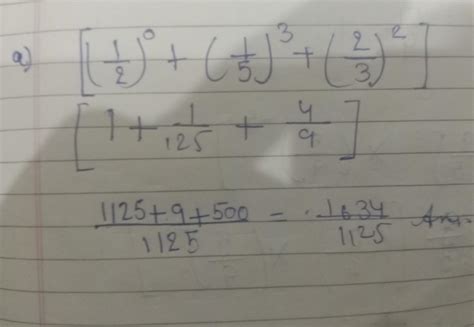 a) [(1/2)^0 + (1/5)^3 + (2/3)^2]
[1 + 1/125 + 4/9]
(1125+9+500)/1125 = 1634/1125 Ans.